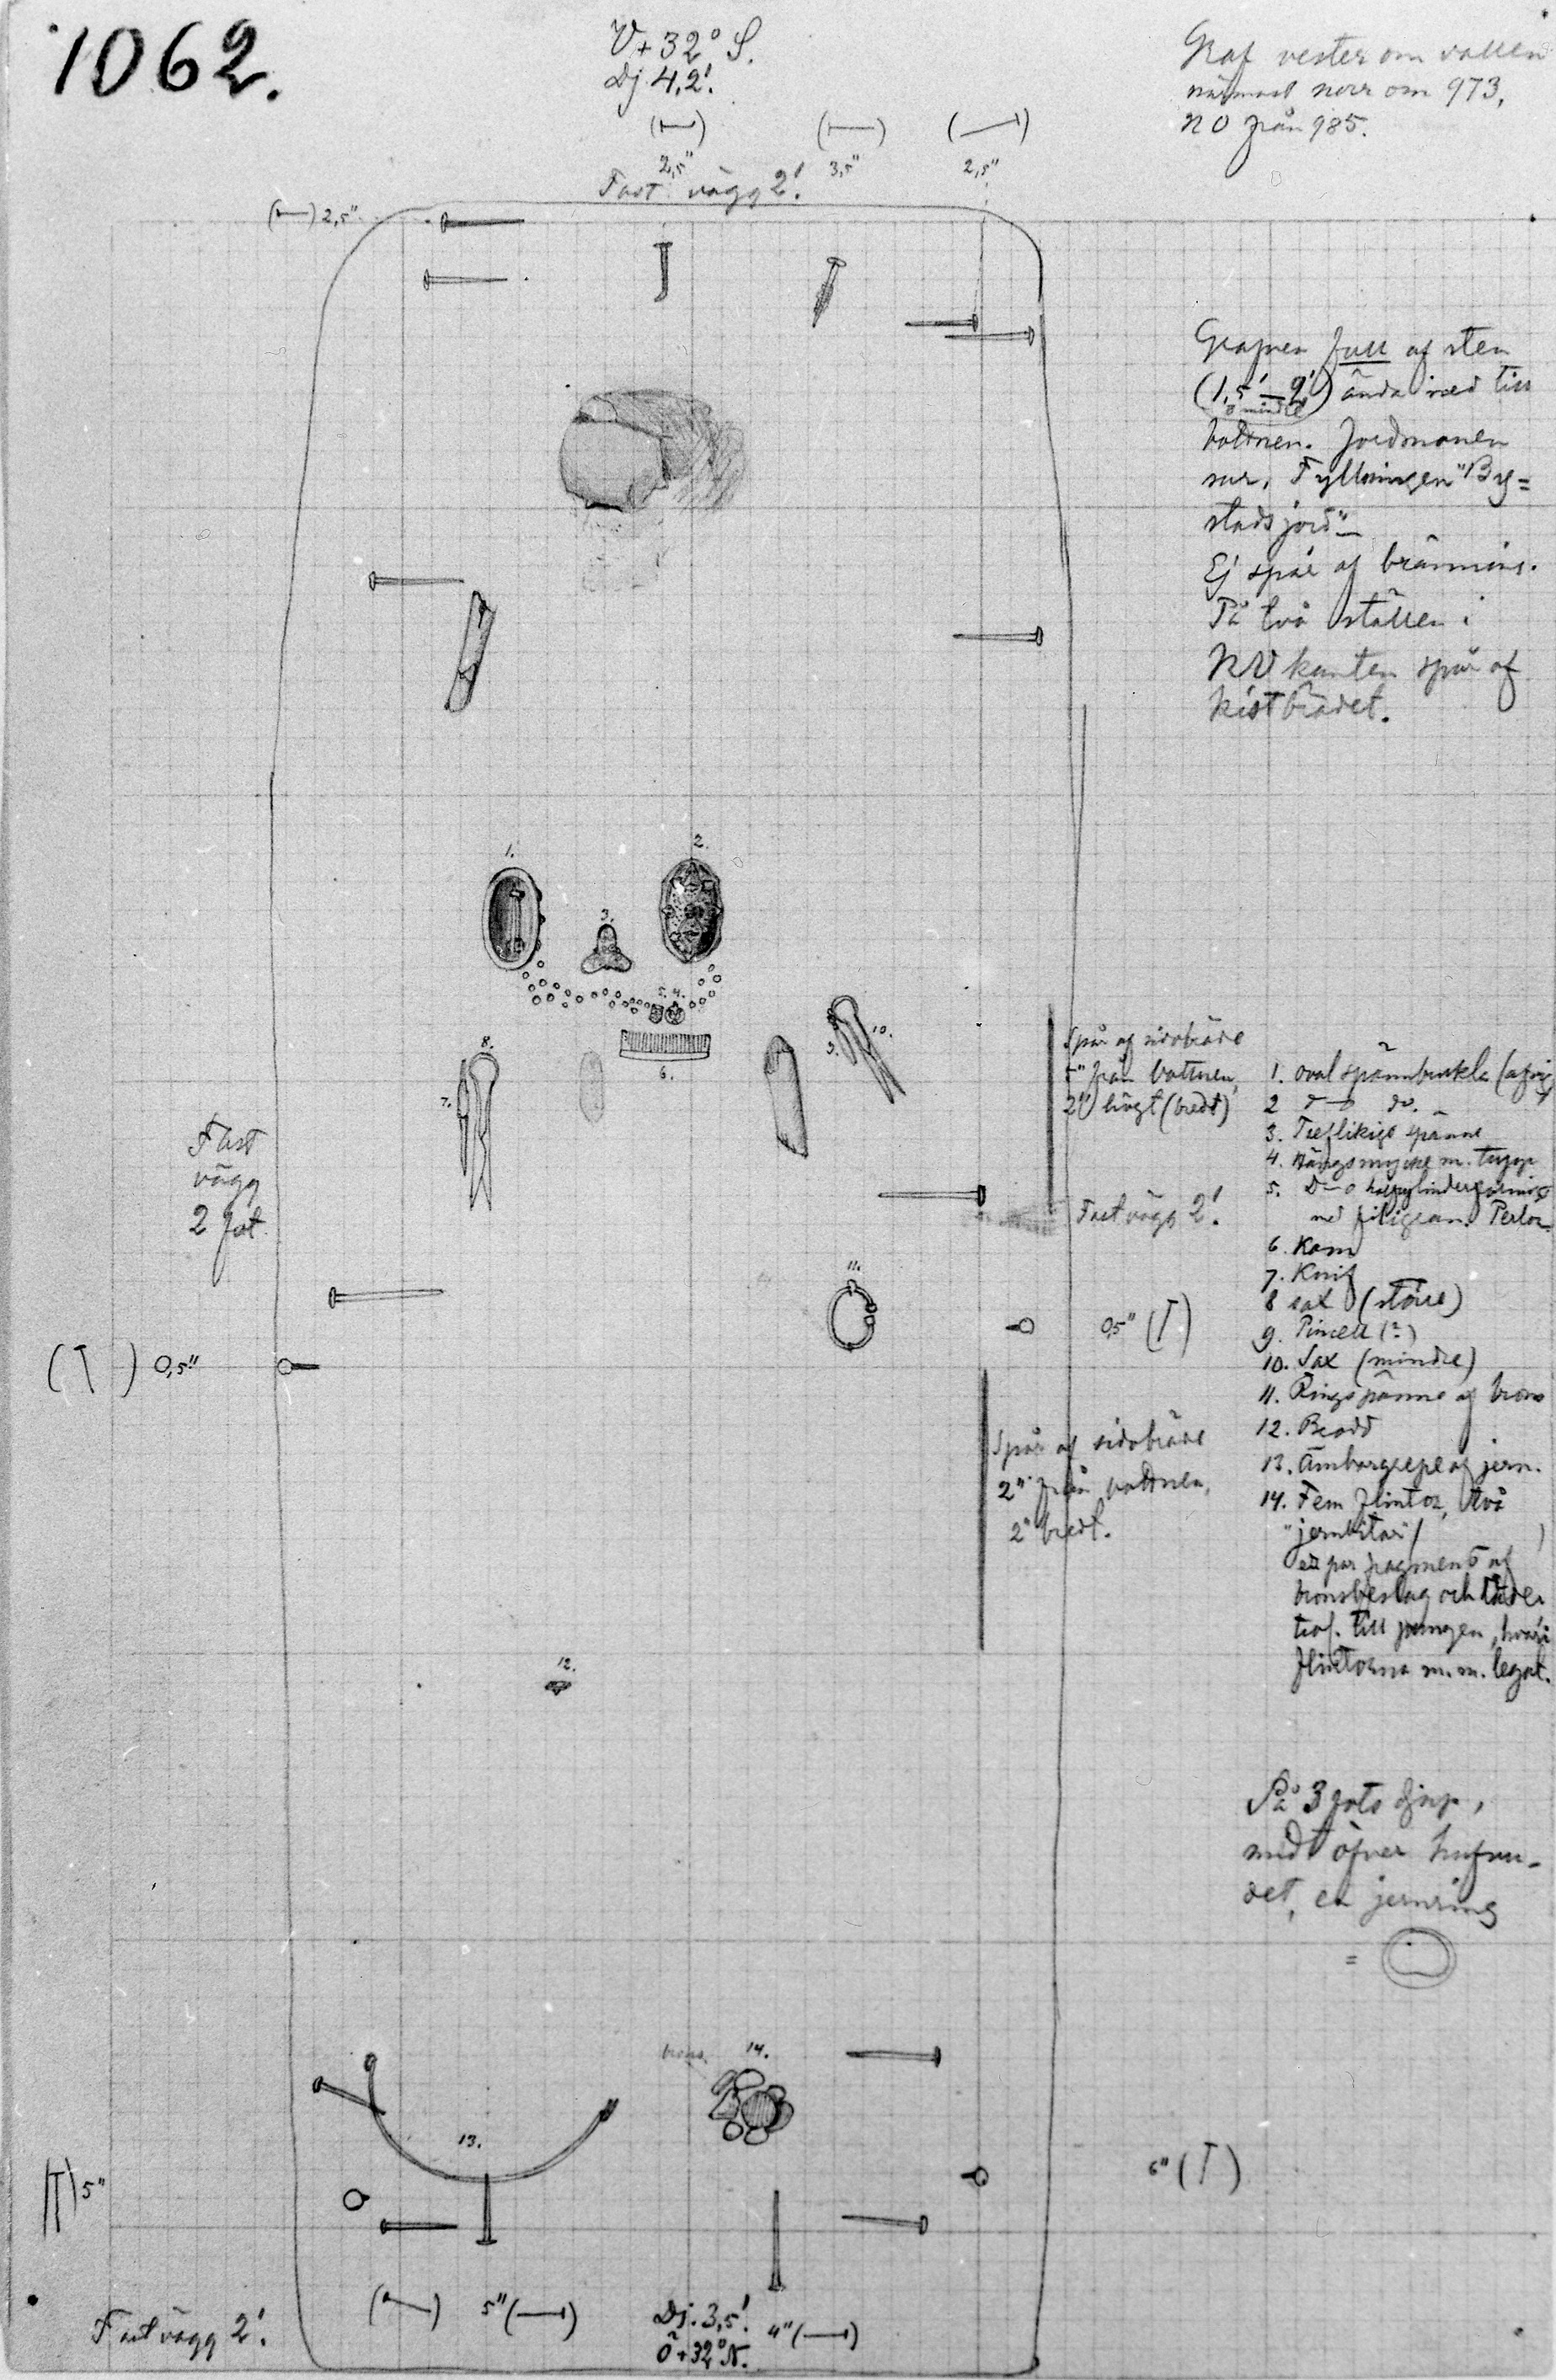 1062.
V+32° S.
Dj. 4,2'.
Graf vester om vallen
närmast norr om 973,
NO från 985.
2,5"
3,5"
2,5"
Fast vägg 2'.
2,5"
Grafven full af sten
(1,5' – 2') ända ned till
o mindre
bottnen. Jordmånen
sur. Fyllningen "By=
stads jord"
Ej spår af bränning.
På två ställen i
NV kanten spår af
kistbrädet.
1.
2.
3.
5. 4.
6.
7.
8.
9.
10.
Spår af sidobräde
5" från bottnen,
2" högt (bredt)
Fast
vägg
2 fot.
Fast vägg 2'.
11.
0,5" (T)
(T) 0,5"
1. oval spännbuckla
2 d—o do.
3. Treflikigt spänne
4. Hängsmycke m.
5. D—o halfcylinderformigt
med filigran. Perlor.
6. Kam
7. Knif
8 sax (större)
9. Pincett (?)
10. Sax (mindre)
11. Ringspänne af brons
12. Brodd
13. Ämbargrepe af jern.
14. Fem flintor, två
"jernbitar"
ett par fragment af
bronsbeslag och läder
till pungen, hvari
flintorna m.m. legat.
Spår af sidobräde
2" från bottnen,
2" bredt.
12.
På 3 fots djup,
midt öfver hufvu-
det, en jernring
=
brons.
14.
13.
5"
6" (T)
5"
Dj. 3,5'.
Ö+32° N.
4"
Fast vägg 2'.